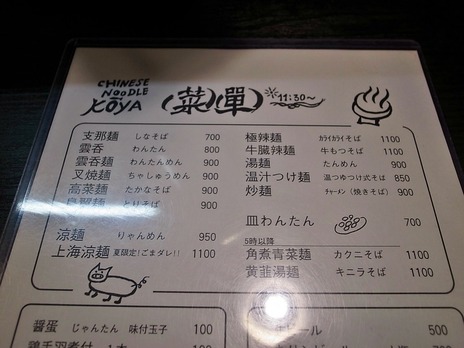 CHINESE
NOODLE
KŌYA
菜單
11:30~
支那麺 しなそば 700
雲呑 わんたん 800
雲呑麺 わんたんめん 900
叉焼麺 ちゃしゅうめん 900
高菜麺 たかなそば 900
とりそば 900
涼麺 りゃんめん 950
上海涼麺 夏限定!ごまダレ!! 1100
極辣麺 カライカライそば 1100
牛臓辣麺 牛もつそば 1100
湯麺 たんめん 900
温汁つけ麺 温つゆつけ式そば 850
炒麺 チャーメン(焼きそば) 900
皿わんたん 700
5時以降
角煮青菜麺 カクニそば 1100
黄韮湯麺 キニラそば 1100
醤蛋 じゃんたん 味付玉子 100
鶏手羽煮付 1本
ビール 500
700